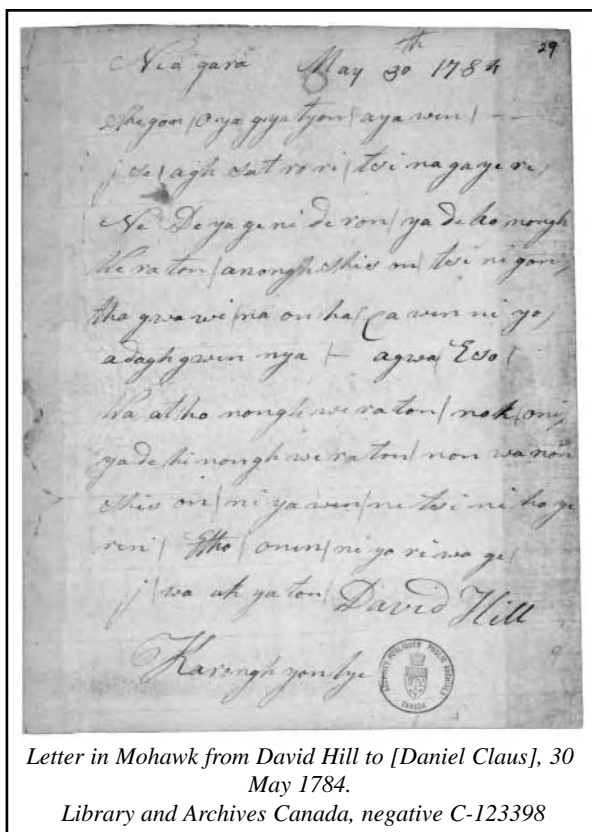 29
Niagara May 30th 1784
Shegon | Oya gyatyon | aya wen | —
j se | agh sat ro ri | tsi na ga ye re,
Ne De ya ge ni de ron | ya de ho nongh
we ra ton | anongh shis on | tsi ni gon,
tha gwa wi | na on ha | ca wen ni yo,
a dagh gwen nya — agwa | Eso |
wa at ho nongh we ra ton | nok | oni,
ya de hi nongh we ra ton | non wa non
shis on | ni ya wen | ne tsi ni ho ye
ren | Etho | onen | ni yo ri wa ge |
j | wa ak ya ton | David Hill
Karongh yon tye
ARCHIVES PUBLIQUES PUBLIC ARCHIVES
CANADA
Letter in Mohawk from David Hill to [Daniel Claus], 30
May 1784.
Library and Archives Canada, negative C-123398